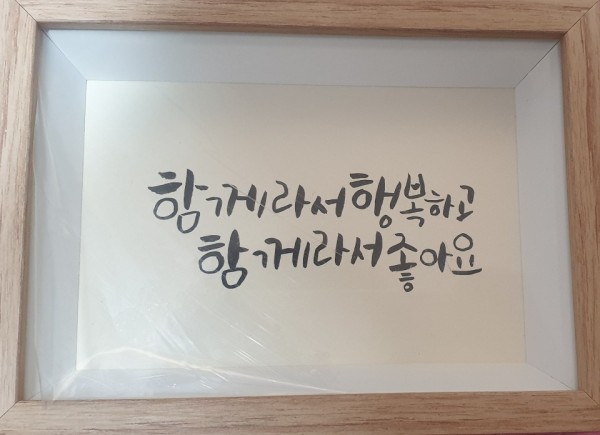 함께라서 행복하고
함께라서 좋아요